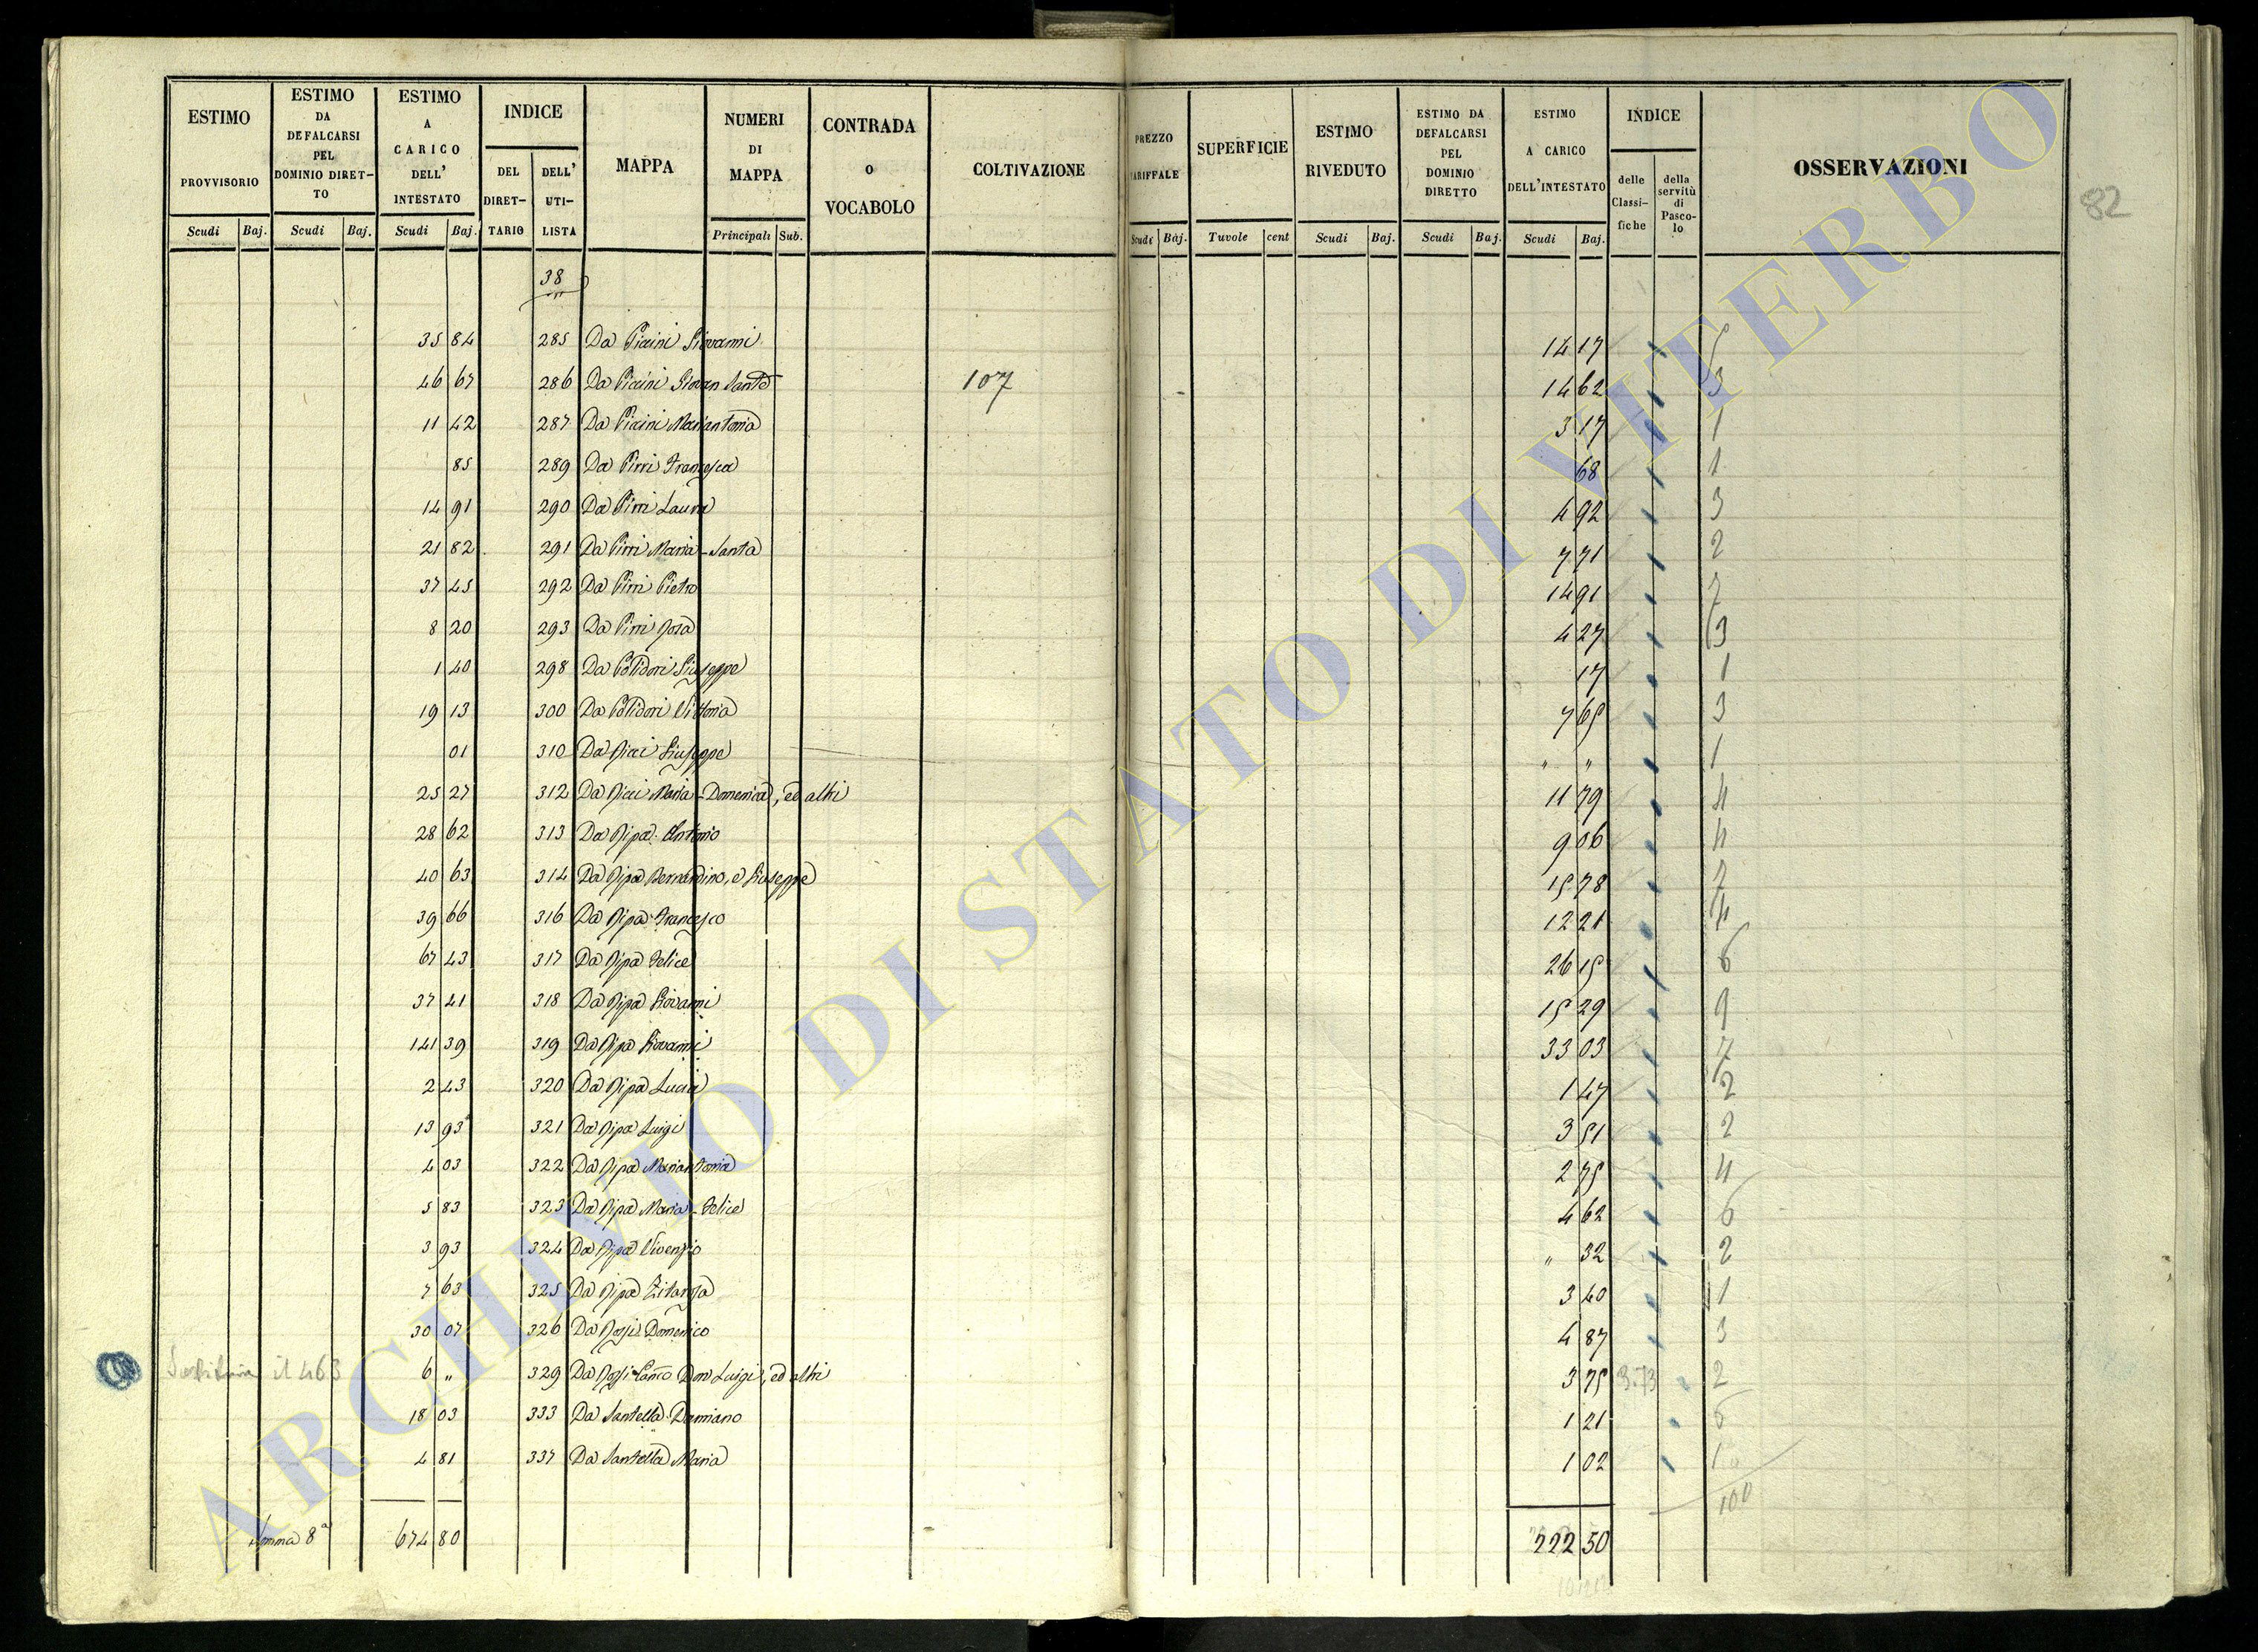 ESTIMO PROVVISORIO Scudi Baj.
ESTIMO DA DEFALCARSI PEL DOMINIO DIRET-TO Scudi Baj.
ESTIMO A CARICO DELL' INTESTATO Scudi Baj.
INDICE DEL DIRET-TARIO DELL' UTI-LISTA
MAPPA
NUMERI DI MAPPA Principali Sub.
CONTRADA O VOCABOLO
COLTIVAZIONE
PREZZO TARIFFALE Scudi Baj.
SUPERFICIE Tuvole cent
ESTIMO RIVEDUTO Scudi Baj.
ESTIMO DA DEFALCARSI PEL DOMINIO DIRETTO Scudi Baj.
ESTIMO A CARICO DELL'INTESTATO Scudi Baj.
INDICE delle Classi-fiche della servitù di Pasco-lo
OSSERVAZIONI
82
38
35 84 285 Da Piccini Giovanni 14 17
46 67 286 Da Piccini Giovan Santo 107 14 62 3
11 42 287 Da Piccini Mariantonia 3 17 1
85 289 Da Pirri Francesca 68 1
14 91 290 Da Pirri Laura 4 92 3
21 82 291 Da Pirri Maria-Santa 7 71 2
37 45 292 Da Pirri Pietro 14 91 7
8 20 293 Da Pirri Rosa 4 27 3
1 40 298 Da Polidori Giuseppe 17 1
19 13 300 Da Polidori Vittoria 7 65 3
01 310 Da Ricci Giuseppe " " 1
25 27 312 Da Ricci Maria-Domenica, ed altri 11 79 4
28 62 313 Da Ripa Antonio 9 06 4
40 63 314 Da Ripa Bernardino, e Giuseppe 15 78 7
39 66 316 Da Ripa Francesco 12 21 4
67 43 317 Da Ripa Felice 26 15 6
37 41 318 Da Ripa Giovanni 15 29 9
141 39 319 Da Ripa Giovanni 33 03 7
2 43 320 Da Ripa Lucia 1 47 2
13 93 321 Da Ripa Luigi 3 51 2
4 03 322 Da Ripa Mariantonia 2 75 4
5 83 323 Da Ripa Maria-Felice 4 62 6
3 93 324 Da Ripa Vivenzio " 32 2
7 63 325 Da Ripa Zitanza 3 40 1
30 07 326 Da Rossi Domenico 4 87 3
il 463 6 " 329 Da Rossi Don Luigi, ed altri 3 75 3.73 2
18 03 333 Da Santella Damiano 1 21 6
4 81 337 Da Santella Maria 1 02 1
100
Somma 8a 674 80 222 50
ARCHIVIO DI STATO DI VITERBO